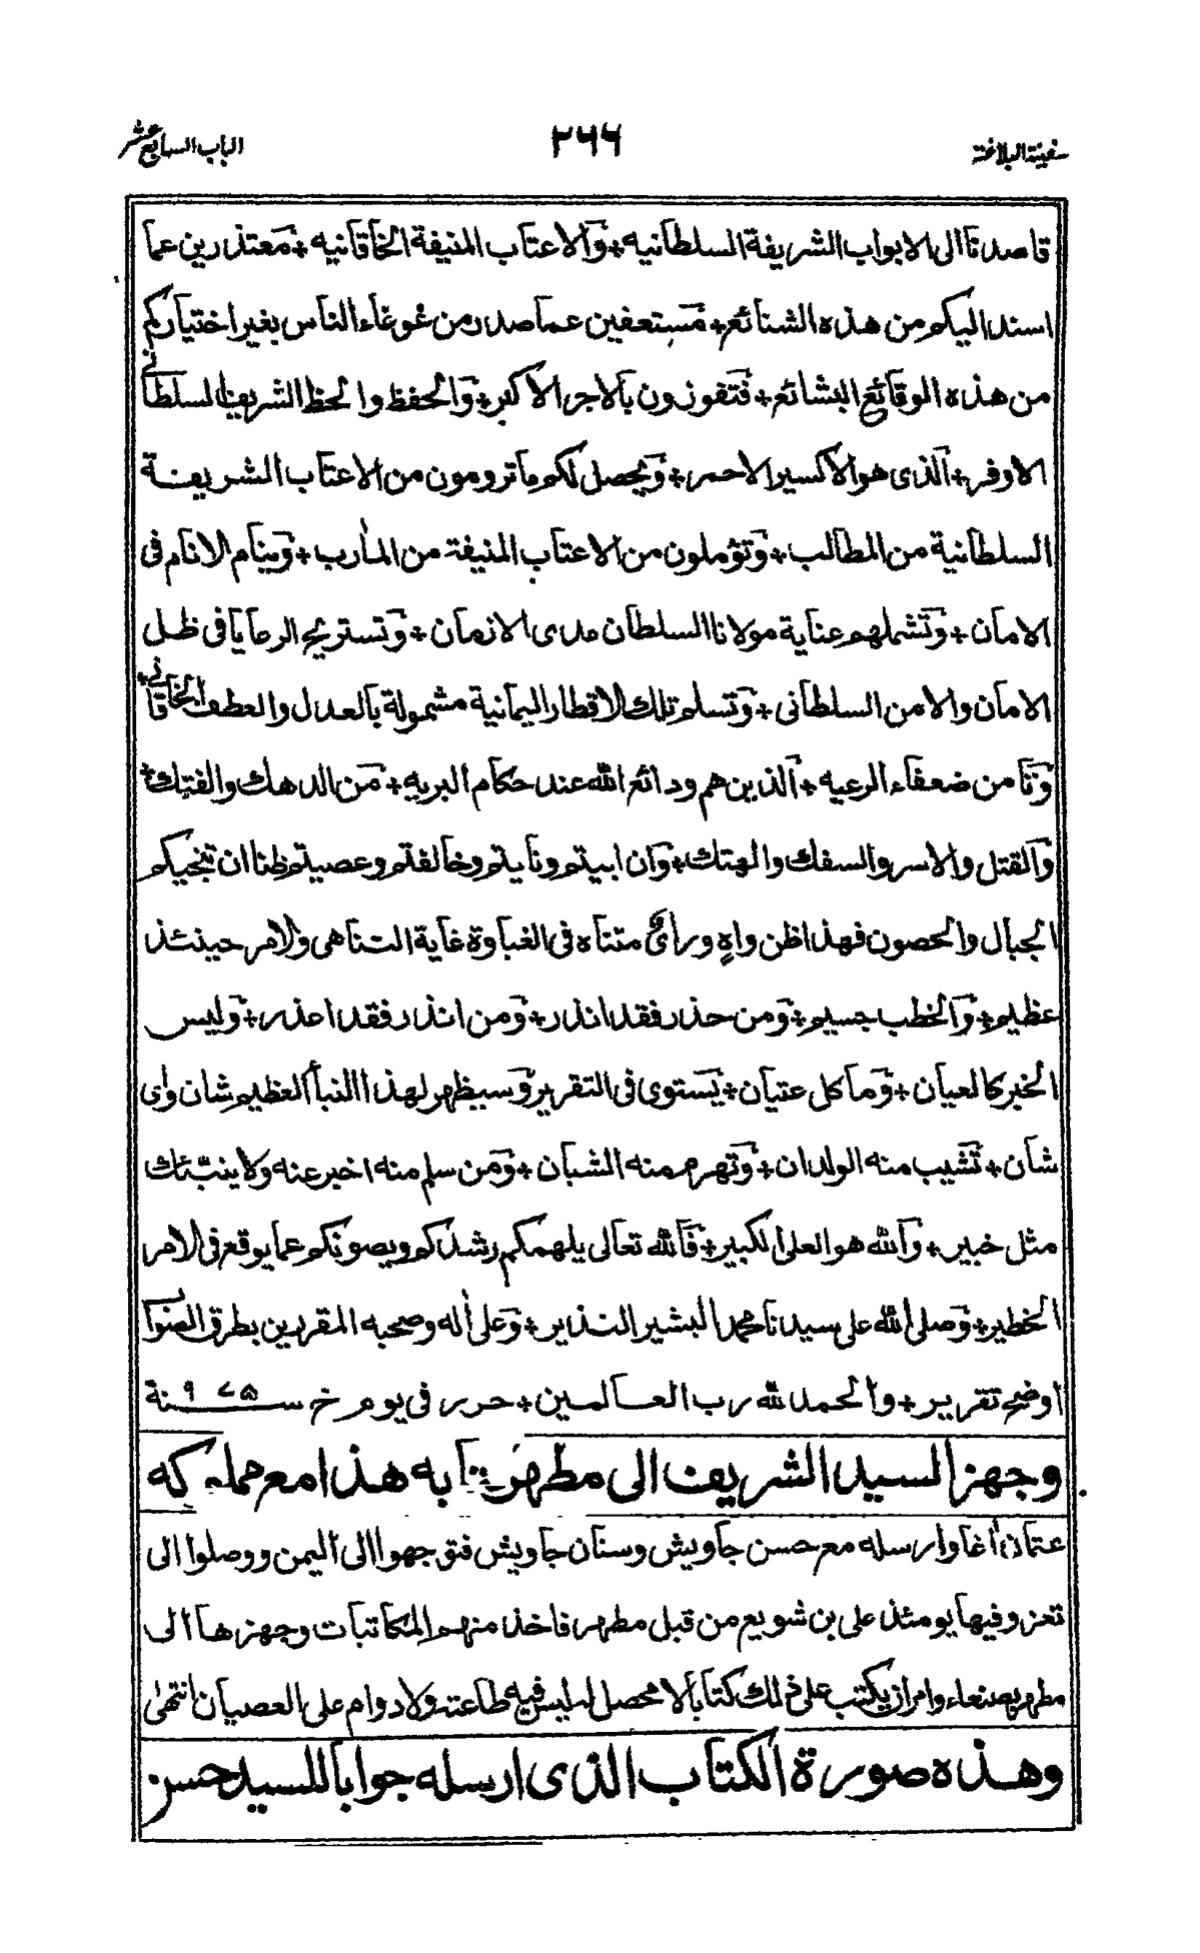 سفينة البلاغة ٢٦٦ الباب السابع عشر
قاصدنا الى الابواب الشريفة السلطانيه + والاعتاب المنيفة الخاقانيه + معتذرين عما
اسند اليكم من هذه الشنائع + مستعفين عما صدر من غوغاء الناس بغير اختياركم
من هذه الوقائع البشائع + فتفوزون بالاجر الاكبر + والحفظ والحظ الشريف السلطاني
الاوفر + الذى هو الاكسير الاحمر + ويحصل لكم ما ترومون من الاعتاب الشريفة
السلطانية من المطالب + وتؤملون من الاعتاب المنيفة من المآرب + وينام الانام فى
الامان + وتشملهم عناية مولانا السلطان مدى الازمان + وتستريح الرعايا فى ظل
الامان والامن السلطانى + وتسلم تلك الاقطار اليمانية مشمولة بالعدل والعطف الخاقاني +
وتامن ضعفاء الرعيه + الذين هم ودائع الله عند حكام البريه + من الدهك والفتك +
والقتل والاسر والسفك والهتك + وان ابيتم ونايتم وخالفتم وعصيتم ظنا ان تنجيكم
الجبال والحصون فهذا ظن واهٍ ورأى متناه فى الغباوة غاية التناهى والامر حينئذ
عظيم + والخطب جسيم + ومن حذر فقد انذر + ومن انذر فقد اعذر + وليس
الخبر كالعيان + وما كل عتيان + يستوى فى التقرير وسيظهر لهذا النبأ العظيم شان واى
شان + تشيب منه الولدان + وتهرم منه الشبان + ومن سلم منه اخبر عنه ولا ينبّئك
مثل خبير + والله هو العلى الكبير + فالله تعالى يلهمكم رشدكم ويصونكم عما يوقع فى الامر
الخطير + وصلى الله على سيدنا محمد البشير النذير + وعلى أله وصحبه المقررين بطرق الصواب
اوضح تقرير + والحمد لله رب العالمين + حرر فى يوم خ سنة ٩٧٥
وجهز السيد الشريف الى مطهر به هذا مع حمله كه
عتمان أغا وارسله مع حسن جاويش وسنان جاويش فتوجهوا الى اليمن ووصلوا الى
تعز وفيها يومئذ على بن شويع من قبل مطهر فاخذ منهم المكاتبات وجهزها الى
مطهر بصنعاء وامر ان يكتب على ذلك كتابا لا محصل له ليس فيه طاعته ولا دوام على العصيان انتهى
وهذه صورة الكتاب الذى ارسله جوابا للسيد حسن